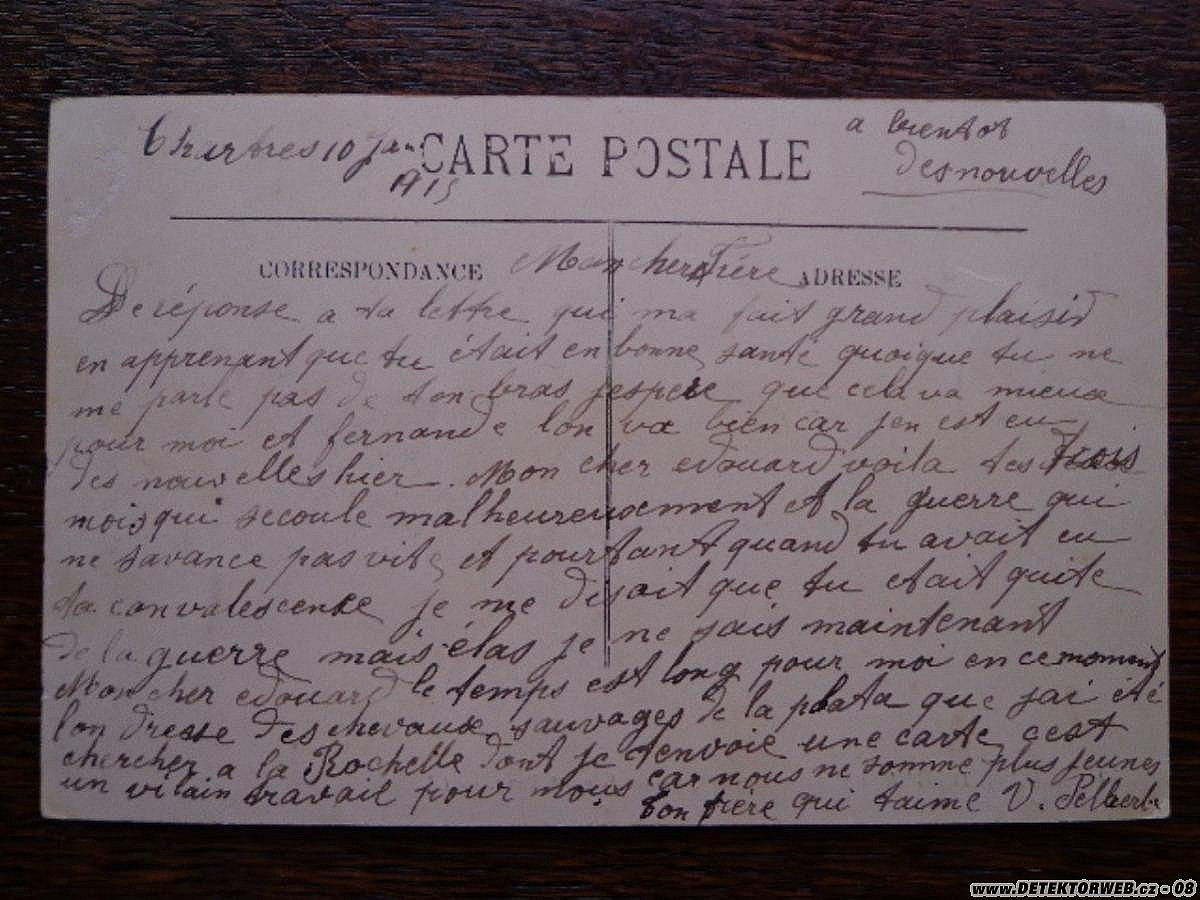 Chartres 10 Jan
1915
CARTE POSTALE
a bientot
des nouvelles
CORRESPONDANCE
Mon cher Frère
ADRESSE
De réponse a ta lettre qui ma fait grand plaisir
en apprenant que tu était en bonne santé quoique tu ne
me parle pas de ton bras jespere que cela va mieux
pour moi et fernande lon va bien car jen est eu
des nouvelles hier. Mon cher edouard voila des trois
mois qui secoule malheureusement et la guerre qui
ne savance pas vite et pourtant quand tu avait eu
ta convalescence je me disait que tu etait quite
de la guerre mais élas je ne sais maintenant
Mon cher edouard le temps est long pour moi en ce moment
lon dresse des chevaux sauvages de la plata que jai été
chercher a la Rochelle dont je tenvoie une carte cest
un vilain travail pour nous car nous ne somme plus jeunes
ton frère qui taime V.
www.DETEKTORWEB.cz - 08